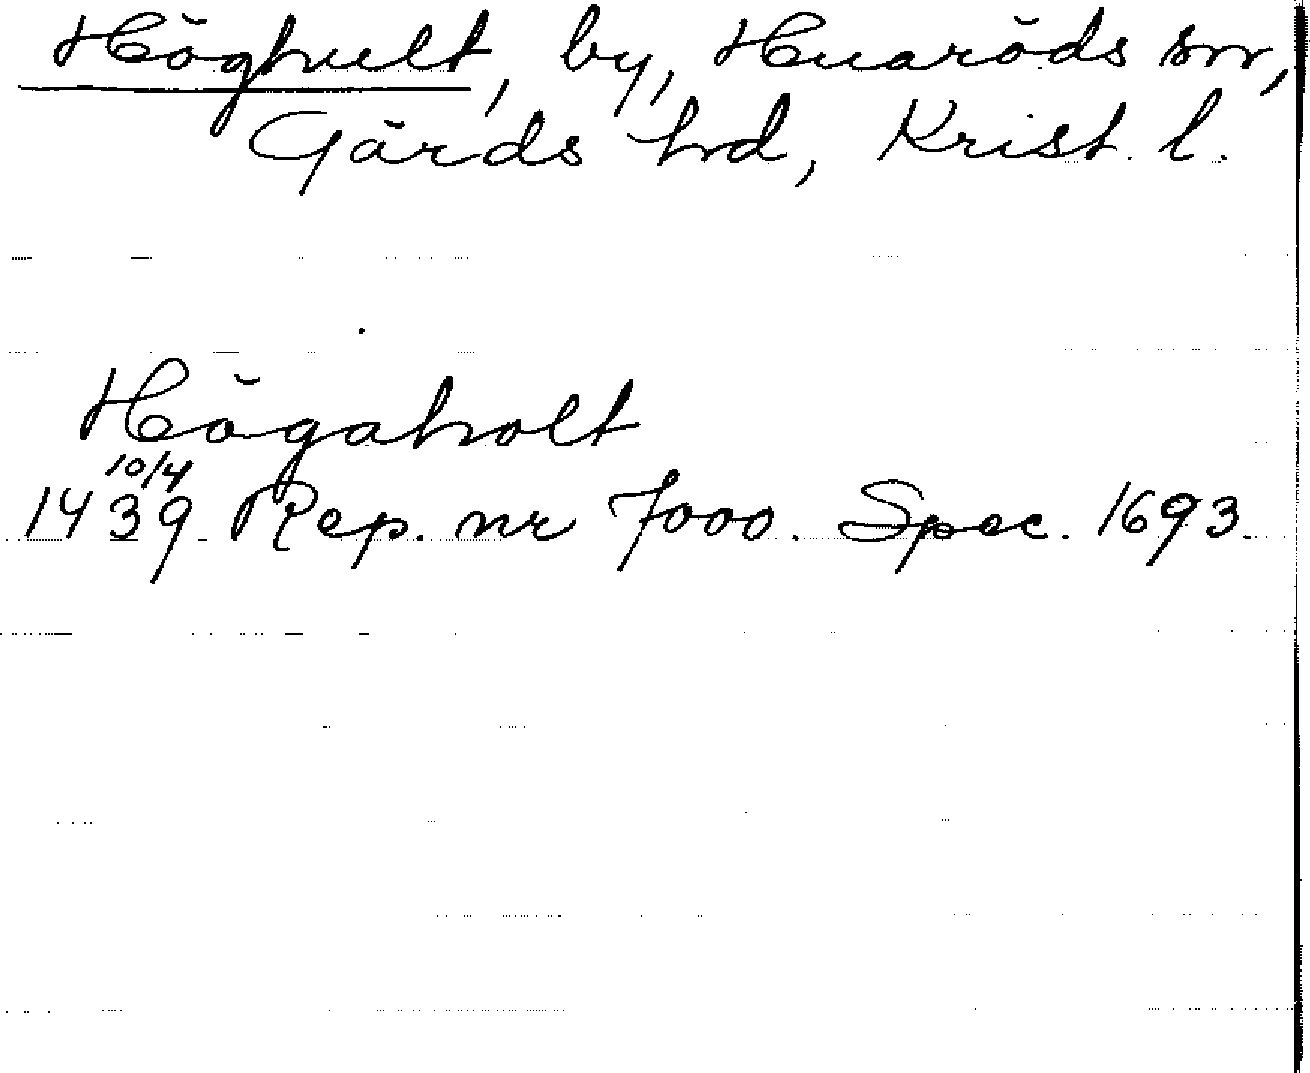 Höghult, by, Huaröds sn,
Gärds hd, Krist. l.
Högaholt
10/4
1439 Rep. nr 7000. Spec. 1693.